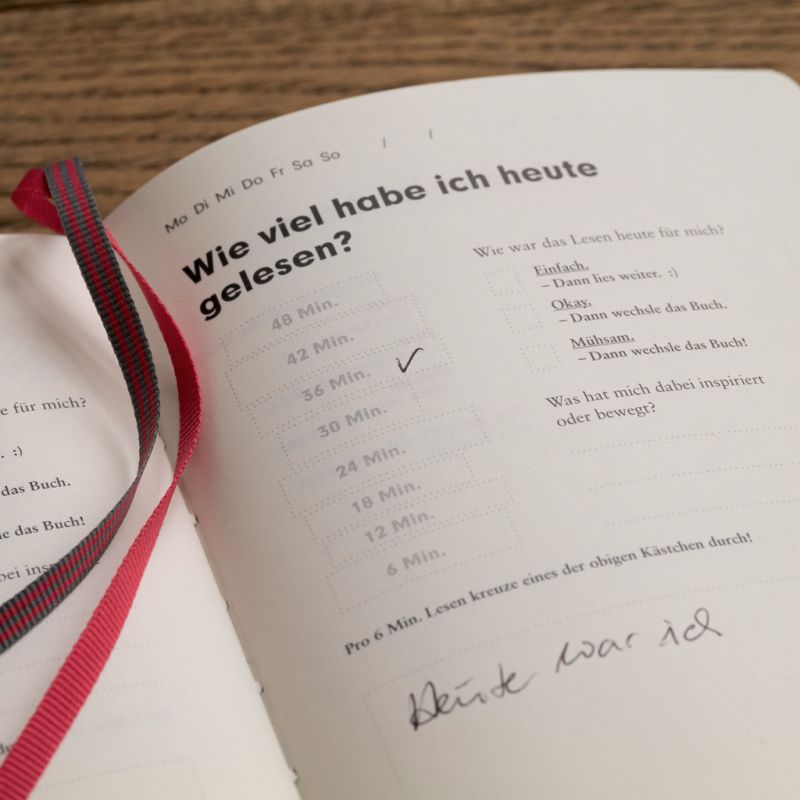 Mo Di Mi Do Fr Sa So / /
Wie viel habe ich heute
gelesen?
48 Min.
42 Min.
36 Min. ✓
30 Min.
24 Min.
18 Min.
12 Min.
6 Min.
Wie war das Lesen heute für mich?
Einfach.
– Dann lies weiter. :)
Okay.
– Dann wechsle das Buch.
Mühsam.
– Dann wechsle das Buch!
Was hat mich dabei inspiriert
oder bewegt?
Pro 6 Min. Lesen kreuze eines der obigen Kästchen durch!
Heute war ich
für mich?
. :)
das Buch.
das Buch!